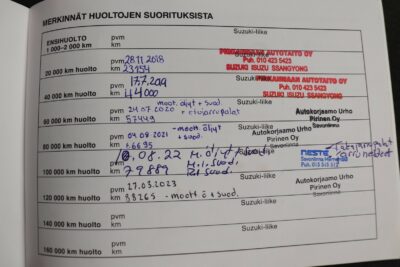 MERKINNÄT HUOLTOJEN SUORITUKSISTA
Suzuki-liike
ENSIHUOLTO
1 000–2 000 km
pvm
km
Suzuki-liike
PIRKANMAAN AUTOTAITO OY
Puh. 010 423 5423
SUZUKI ISUZU SSANGYONG
20 000 km huolto
pvm 28.11.2018
km 23154
Suzuki-liike
PIRKANMAAN AUTOTAITO OY
Puh. 010 423 5423
SUZUKI ISUZU SSANGYONG
40 000 km huolto
pvm 17.7.2019
km 44000
Suzuki-liike
60 000 km huolto
pvm 24.07.2020 - moot. öljyt + suod.
km 57449
Autokorjaamo Urho
Pirinen Oy
Savonlinna
Suzuki-liike
80 000 km huolto
pvm 04.08.2021 - moott öljyt
+ suod.
km 66695
Autokorjaamo Urho
Pirinen Oy
Savonlinna
Suzuki-liike
100 000 km huolto
pvm .08.22 M.öljyt/suod
km 79889
NESTE
Suzuki-liike
120 000 km huolto
pvm 27.03.2023
km 88265 - moott ö + suod.
Autokorjaamo Urho
Pirinen Oy
Savonlinna
Suzuki-liike
140 000 km huolto
pvm
km
Suzuki-liike
160 000 km huolto
pvm
km